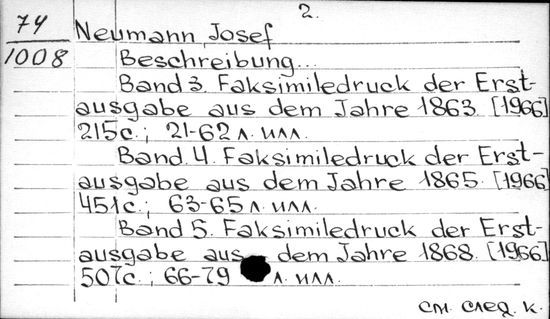 2.
74
1008
Neumann, Josef
Beschreibung...
Band 3. Faksimiledruck der Erst-
ausgabe aus dem Jahre 1863. [1966]
215с.; 21-62 л. илл.
Band 4. Faksimiledruck der Erst-
ausgabe aus dem Jahre 1865. [1966]
451с.; 63-65 л. илл.
Band 5. Faksimiledruck der Erst-
ausgabe aus dem Jahre 1868. [1966]
507с.; 66-79 л. илл.
см. след. к.